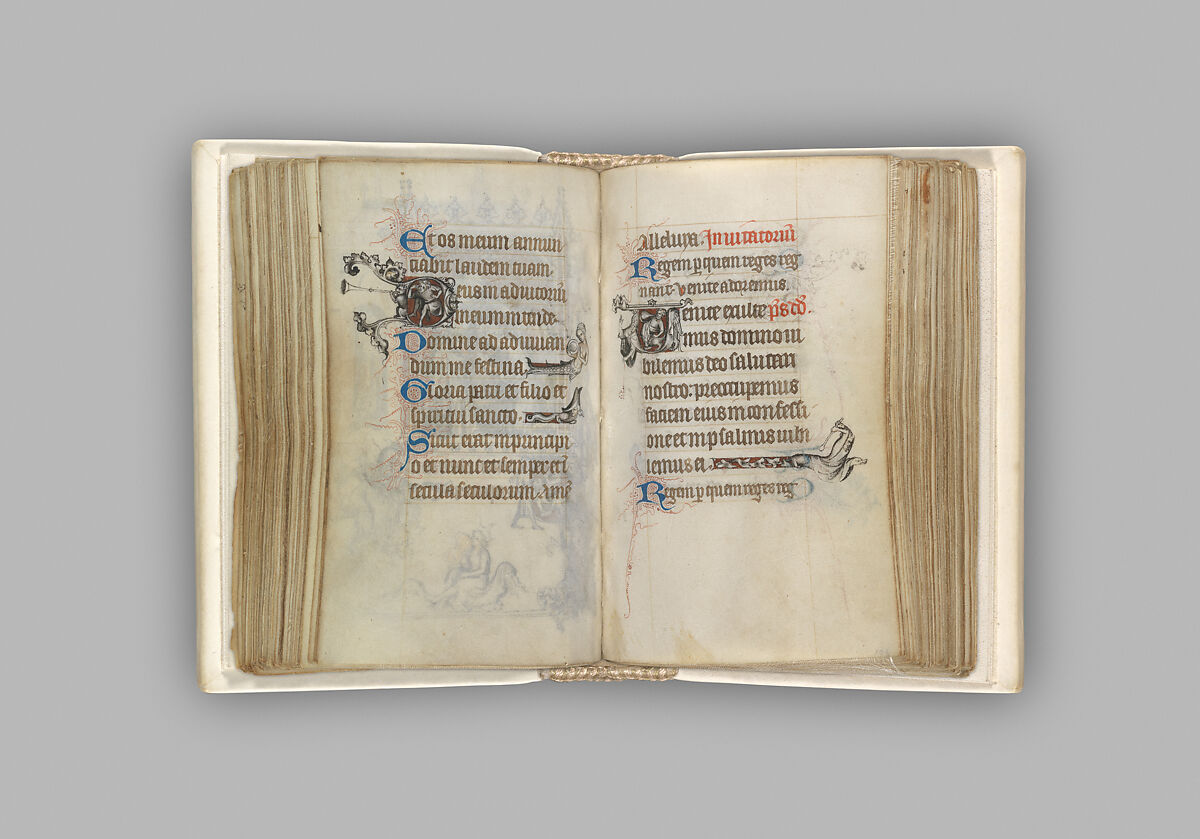 Et os meum annun
ciabit laudem tuam.
Deus in adiutoriū
meum intende.
Domine ad adiuuan
dum me festina
Gloria patri et filio et
spiritui sancto.
Sicut erat in principi
o et nunc et semper et ī
secula seculorum. Amē
Alleluya. Inuitatoriū
Regem p quem reges reg
nant. Venite adoremus.
Venite exulte ps dd.
mus domino iu
bilemus deo salutari
nostro: preoccupemus
faciem eius in confessi
one et in psalmis iubi
lemus ei.
Regem p quem reges reg